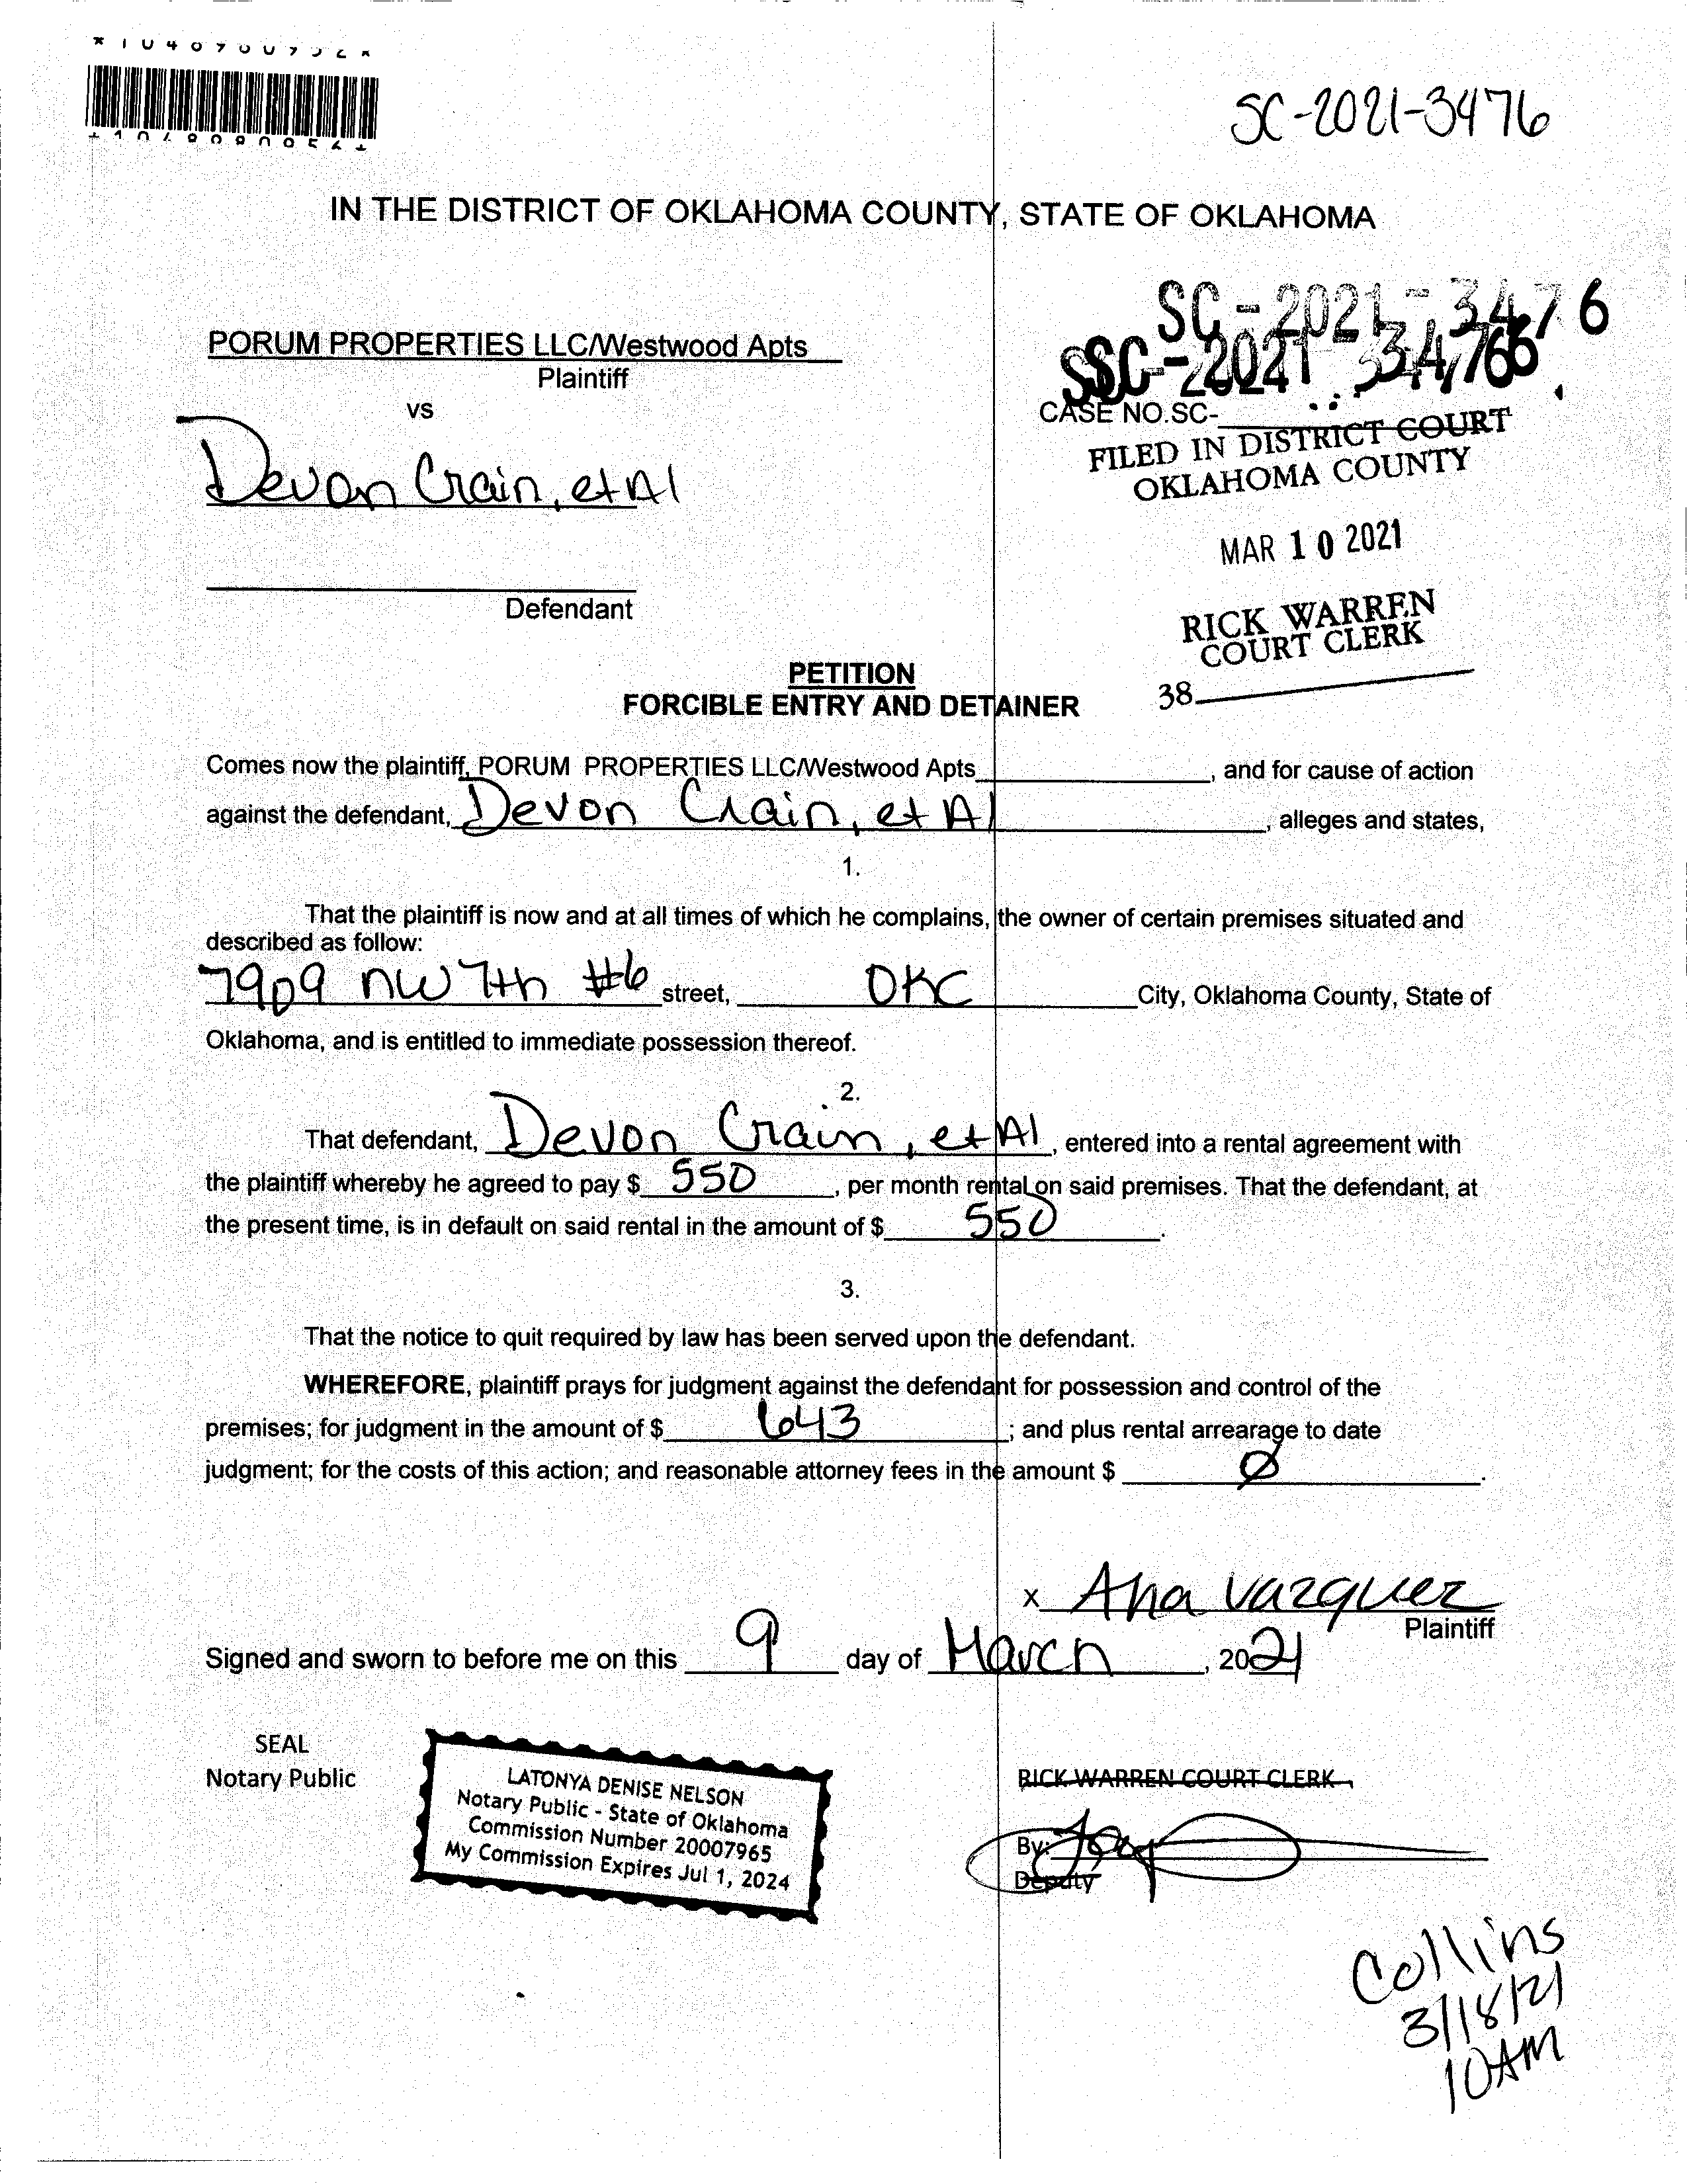 SC-2021-3476
IN THE DISTRICT OF OKLAHOMA COUNTY, STATE OF OKLAHOMA
PORUM PROPERTIES LLC/Westwood Apts
Plaintiff
vs
Devon Crain, et Al
Defendant
SC-2021-3476
CASE NO.SC-
FILED IN DISTRICT COURT
OKLAHOMA COUNTY
MAR 10 2021
RICK WARREN
COURT CLERK
38
PETITION
FORCIBLE ENTRY AND DETAINER
Comes now the plaintiff, PORUM PROPERTIES LLC/Westwood Apts, and for cause of action
against the defendant, Devon Crain, et Al, alleges and states,
1.
That the plaintiff is now and at all times of which he complains, the owner of certain premises situated and
described as follow:
7909 NW 7th #6 street, OKC City, Oklahoma County, State of
Oklahoma, and is entitled to immediate possession thereof.
2.
That defendant, Devon Crain, et Al, entered into a rental agreement with
the plaintiff whereby he agreed to pay $ 550, per month rental on said premises. That the defendant, at
the present time, is in default on said rental in the amount of $ 550.
3.
That the notice to quit required by law has been served upon the defendant.
WHEREFORE, plaintiff prays for judgment against the defendant for possession and control of the
premises; for judgment in the amount of $ 643; and plus rental arrearage to date
judgment; for the costs of this action; and reasonable attorney fees in the amount $ Ø.
x Ana Vazquez
Plaintiff
Signed and sworn to before me on this 9 day of March, 2021
SEAL
Notary Public
LATONYA DENISE NELSON
Notary Public - State of Oklahoma
Commission Number 20007965
My Commission Expires Jul 1, 2024
RICK WARREN COURT CLERK
By:
Deputy
Collins
3/18/21
10AM